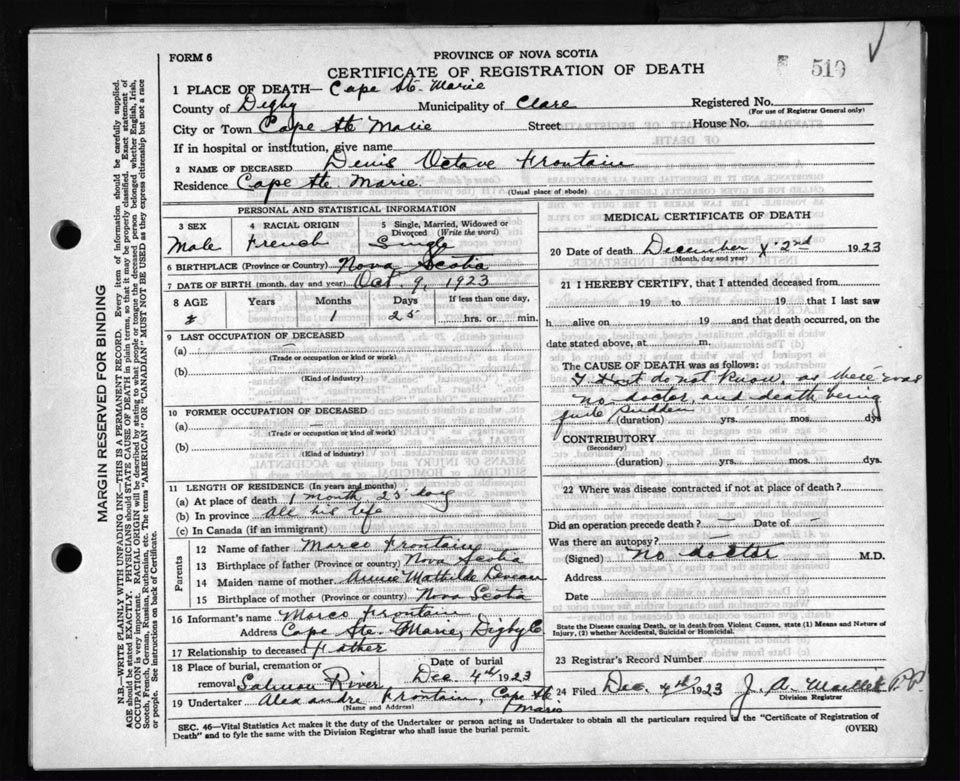 FORM 6
PROVINCE OF NOVA SCOTIA
519
CERTIFICATE OF REGISTRATION OF DEATH
1 PLACE OF DEATH— Cape Ste. Marie
County of Digby Municipality of Clare Registered No.
(For use of Registrar General only)
City or Town Cape Ste Marie Street House No.
If in hospital or institution, give name
2 NAME OF DECEASED Denis Octave Frontain
Residence Cape Ste Marie.
(Usual place of abode)
PERSONAL AND STATISTICAL INFORMATION
3 SEX 4 RACIAL ORIGIN 5 Single, Married, Widowed or Divorced (Write the word)
Male French Single
6 BIRTHPLACE (Province or Country) Nova Scotia
7 DATE OF BIRTH (month, day and year) Oct 9, 1923
8 AGE Years Months Days If less than one day,
1 25 hrs. or min.
9 LAST OCCUPATION OF DECEASED
(a)
(Trade or occupation or kind or work)
(b)
(Kind of industry)
10 FORMER OCCUPATION OF DECEASED
(a) —
(Trade or occupation or kind of work)
(b)
(Kind of industry)
11 LENGTH OF RESIDENCE (In years and months)
(a) At place of death 1 month 25 day
(b) In province all his life
(c) In Canada (if an immigrant)
Parents
12 Name of father Marco Frontain
13 Birthplace of father (Province or country) Nova Scotia
14 Maiden name of mother Annie Mathilde Deveau
15 Birthplace of mother (Province or country) Nova Scotia
16 Informant's name Marco Frontain
Address Cape Ste. Marie, Digby Co
17 Relationship to deceased Father
18 Place of burial, cremation or removal Salmon River Date of burial Dec 4th 1923
19 Undertaker Alexandre Frontain, Cape Ste Marie
(Name and Address)
MEDICAL CERTIFICATE OF DEATH
20 Date of death December 2nd 1923
(Month, day and year)
21 I HEREBY CERTIFY, that I attended deceased from
19 to 19 that I last saw
h alive on 19 and that death occurred, on the
date stated above, at m.
The CAUSE OF DEATH was as follows:
I do not know, as there was
no doctor, and death being
quite sudden
(duration) yrs. mos. dys
CONTRIBUTORY
(Secondary)
(duration) yrs. mos. dys.
22 Where was disease contracted if not at place of death?
Did an operation precede death? — Date of —
Was there an autopsy? —
(Signed) no doctor M.D.
Address
Date
State the Disease causing Death, or in death from Violent Causes, state (1) Means and Nature of
Injury, (2) whether Accidental, Suicidal or Homicidal.
23 Registrar's Record Number
24 Filed Dec. 4th 1923 J. A. PP.
Division Registrar
SEC. 46—Vital Statistics Act makes it the duty of the Undertaker or person acting as Undertaker to obtain all the particulars required in the "Certificate of Registration of
Death" and to fyle the same with the Division Registrar who shall issue the burial permit.
(OVER)
MARGIN RESERVED FOR BINDING
N.B.—WRITE PLAINLY WITH UNFADING INK—THIS IS A PERMANENT RECORD. Every item of information should be carefully supplied.
AGE should be stated EXACTLY. PHYSICIANS should STATE CAUSE OF DEATH in plain terms, so that it may be properly classified. Exact statement of
OCCUPATION is very important. RACIAL ORIGIN will be described by stating to what people or tongue the deceased person belonged whether English, Irish,
Scotch, French, German, Russian, Ruthenian, etc. The terms "AMERICAN" OR "CANADIAN" MUST NOT BE USED as they express citizenship but not a race
or people. See instructions on back of Certificate.